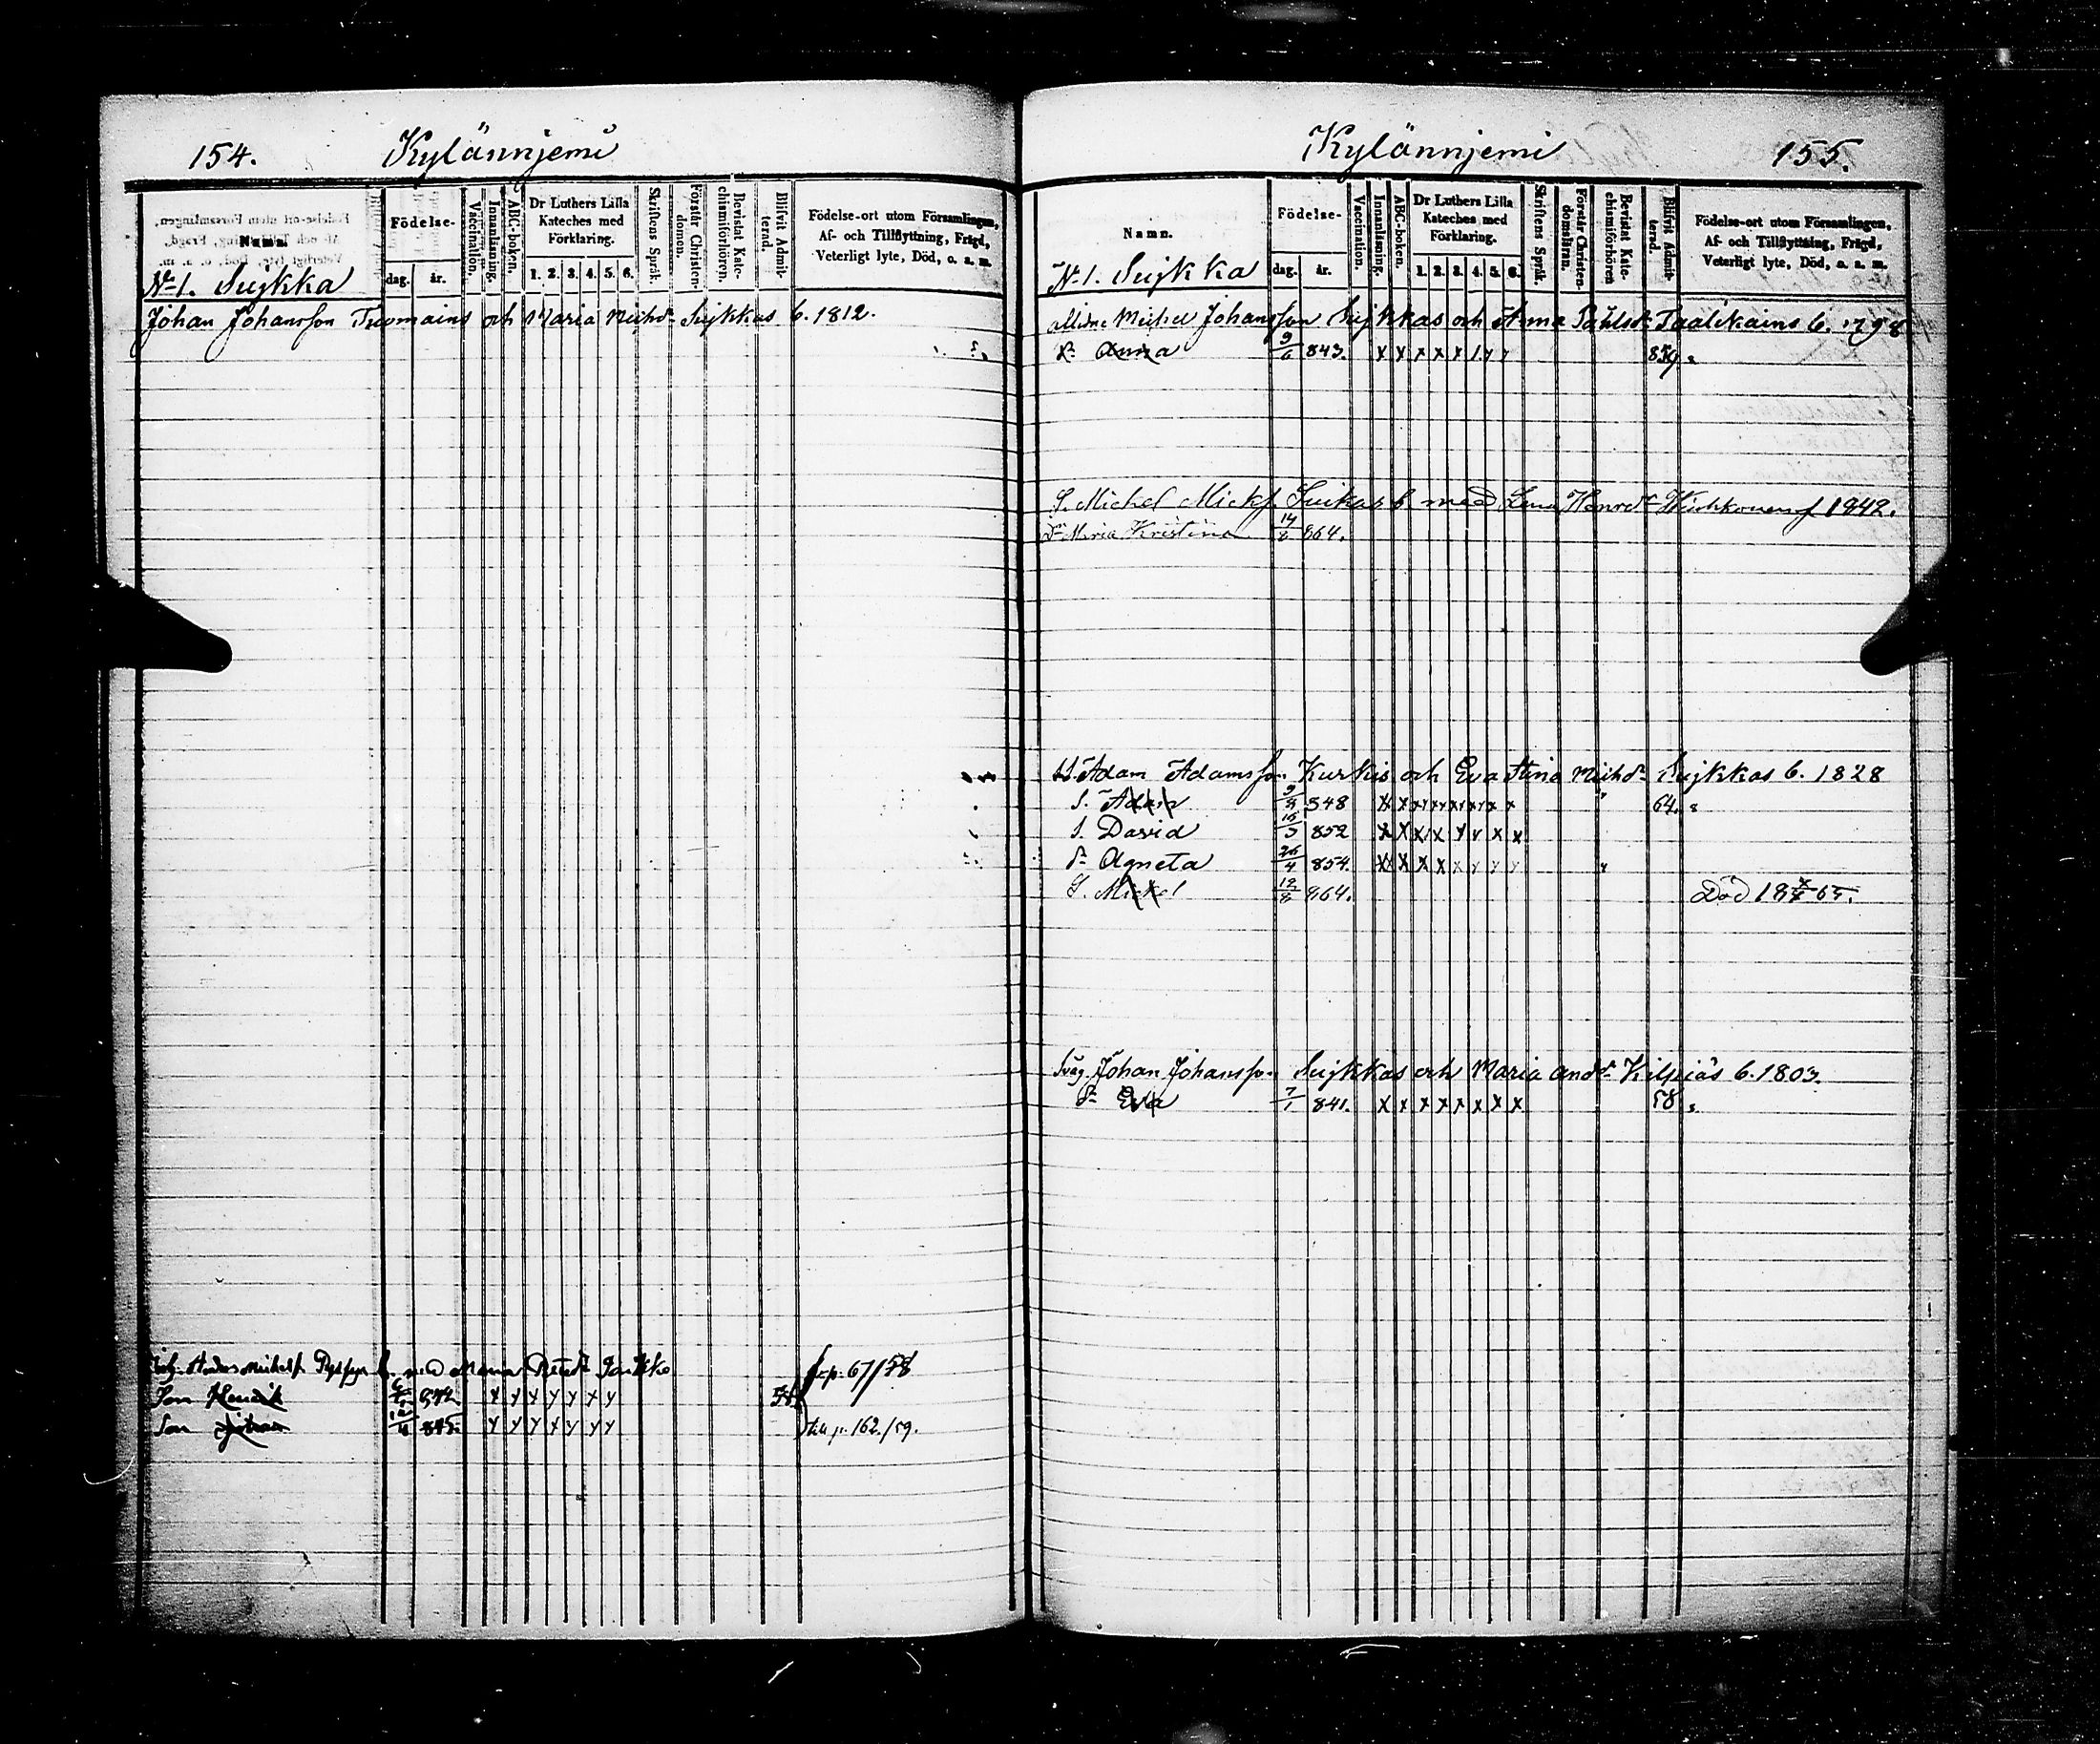 154. Kylännjemi
Namn.
Födelse-
dag. år.
Vaccination.
Innanläsning.
ABC-boken.
Dr Luthers Lilla Kateches med Förklaring.
1. 2. 3. 4. 5. 6.
Skriftens Språk.
Förstår Christendomen.
Bevistat Katechismiförhören.
Blifvit Admitterad.
Födelse-ort utom Församlingen, Af- och Tillflyttning, Frägd, Veterligt lyte, Död, o. s. m.
No 1. Sujkka
Johan Johansson Tuomains och Maria Michdr Sujkkas b. 1812.
med Maria
fr. p. 67/58
Son Henrik
Son Johan
till p. 162./59.
Kylännjemi 155.
Namn.
Födelse-
dag. år.
Vaccination.
Innanläsning.
ABC-boken.
Dr Luthers Lilla Kateches med Förklaring.
1. 2. 3. 4. 5. 6.
Skriftens Språk.
Förstår Christendomsläran.
Bevistat Katechismiförhören
Blifvit Admitterad.
Födelse-ort utom Församlingen, Af- och Tillflyttning, Frägd, Veterligt lyte, Död, o. s. m.
No 1. Sujkka
Michel Johansson Sujkkas och Anna Påhlsdr Taalikains b. 1798
dr Anna 9/6 843. x x x x x / x
S. Michel Michs. Suikas b med Lena Henrdr 1842.
Dr Maria Kristina 14/8 864.
Adam Adamsson Kurkis och Eva Stina Michdr Sujkkas b. 1828
S. Adam 848 x x x x x x x x 64.
S. David 852 x x x x x x x x
dr Agneta 26/4 854. x x x x x x x x
S. Mickel 12/8 864. Död 65.
Svåg. Johan Johansson Sujkkas och Maria Anddr Kilpiäs b. 1803.
dr Eva 7/1 841. x x x x x x x x 58